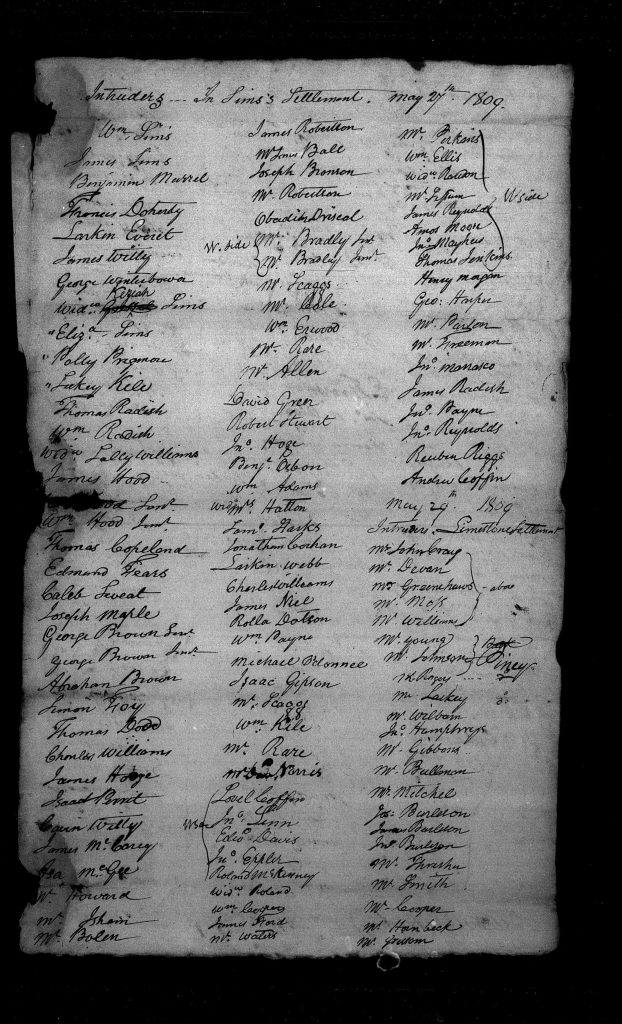 Intruders --- In Sims's Settlement. May 27th 1809.
Wm. Sims
James Sims
Benjamin Murrel
Thomas Doherty
Larkin Everet
James Witty
George Winterbower
Kiziah
Widw. Sims
" Eliza. Sims
" Polly Prigmore
" Lukey Kile
Thomas Radish
Wm. Radish
Widw. Sally Williams
James Hood
Hood Senr.
Wm. Hood Junr.
Thomas Copeland
Edmund Fears
Caleb Sweat
Joseph Meple
George Brown Senr.
George Brown Junr.
Abraham Brown
Simon Foy
Thomas Dodd
Charles Williams
James Hooge
Isaac
Witty
James McCarey
Asa McGee
Wm. Howard
Mr. Isham
Mr. Bolen
James Robertson
Mr. Jones Ball
Joseph Bronson
Mr. Robertson
Obadiah Driscal
W. side
Mr. Bradly Senr.
Mr. Bradly Junr.
Mr. Scaggs
Mr. Cole
Wm. Erwood
Mr. Rare
Mr. Allen
David Greer
Robert Stewart
Jno. Hoge
Benj. Osbon
Wm. Adams
Widw. Hatton
Saml. Harks
Jonathan Cochan
Larkin Webb
Charles Williams
James Niel
Rolla Dotson
Wm. Payne
Michael Odonnee
Isaac Gipson
Mr. Scaggs
Wm. Kile
Mr. Rare
Mr. Norris
Lovel Coffin
Jno. Linn
Davis
Jno. Eppler
Roland McKenney
Widw. Roland
Wm. Cooper
James Ford
Mr. Waters
Mr. Perkins
Wm. Ellis
Widw. Rawdon
Mr.
James Reynolds
W side
Amos Moor
Jno. Mayhew
Thomas Jenkins
Henry Magin
Geo. Harper
Mr. Parson
Mr. Freeman
Jno. Manasco
James Radish
Jno. Payne
Jno. Reynolds
Reuben Riggs
Andrew Coffin
May 29th. 1809
Intruders. Limestone Settlement
Mr. John Craig
Mr. Devan
Mr. Greenehaws - above
Mr. Moss
Mr. Williams
Mr. Young
Mr. Johnson Piney
Mr. Ragey
Mr. Luckey
Mr. Wilbain
Jno. Humphreys
Mr. Gibbons
Mr. Bullman
Mr. Mitchel
Jas. Burleson
James Burleson
Jno. Burleson
Mr. Thrasher
Mr. Smith
Mr. Cooper
Mr. Hornbeck
Mr. Grissom